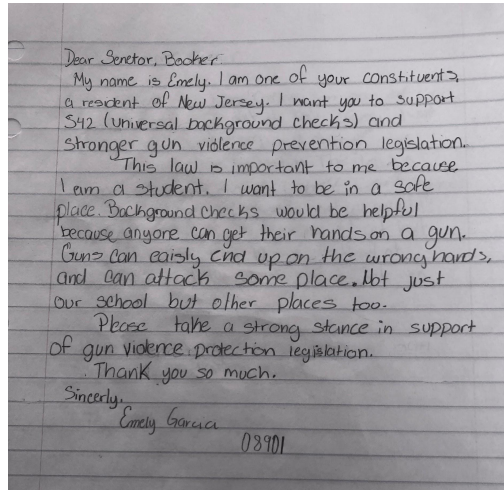 Dear Senetor, Booker
My name is Emely. I am one of your constituents,
a resident of New Jersey. I want you to support
S42 (universal background checks) and
stronger gun violence prevention legislation.
This law is important to me because
I am a student. I want to be in a safe
place. Background checks would be helpful
because anyone can get their hands on a gun.
Guns can eaisly end up on the wrong hands,
and can attack some place. Not just
our school but other places too.
Please take a strong stance in support
of gun violence protection legislation.
Thank you so much.
Sincerly,
Emely Garcia
08901